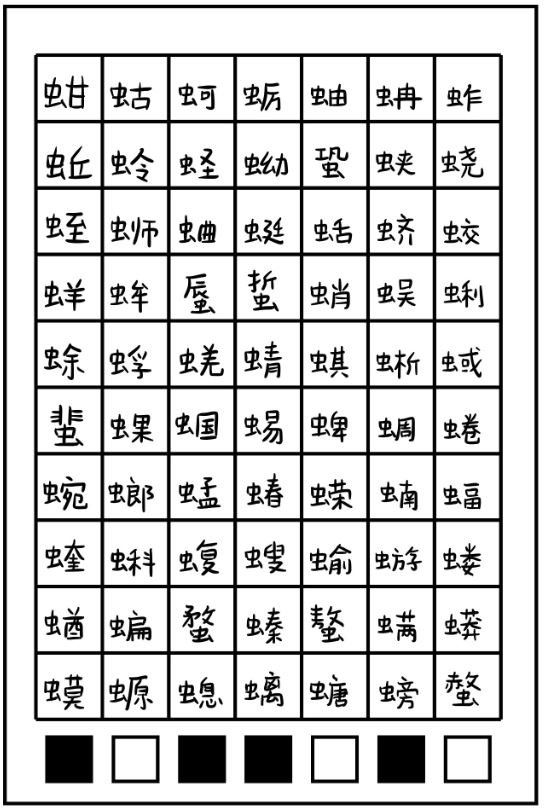 蚶 蛄 蚵 蛎 蚰 蚺 蚱
蚯 蛉 蛏 蚴 蛩 蛱 蛲
蛭 蛳 蛐 蜒 蛞 蛴 蛟
蛘 蛑 蜃 蜇 蛸 蜈 蜊
蜍 蜉 蜣 蜻 蜞 蜥 蜮
蜚 蜾 蝈 蜴 蜱 蜩 蜷
蜿 螂 蜢 蝽 蝾 蝻 蝠
蝰 蝌 蝮 螋 蝓 蝣 蝼
蝤 蝙 蝥 螓 螯 螨 蟒
蟆 螈 螅 螭 螗 螃 螫